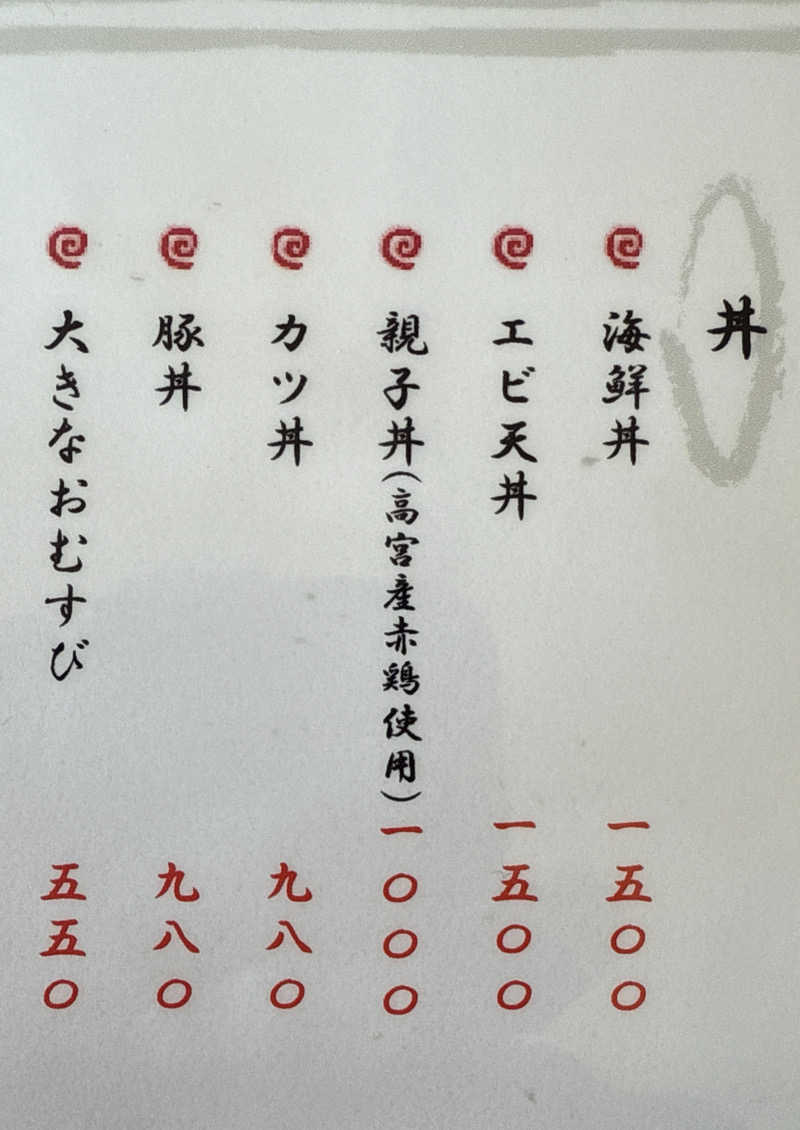 丼
海鮮丼 一五〇〇
エビ天丼 一五〇〇
親子丼(高宮産赤鶏使用) 一〇〇〇
カツ丼 九八〇
豚丼 九八〇
大きなおむすび 五五〇